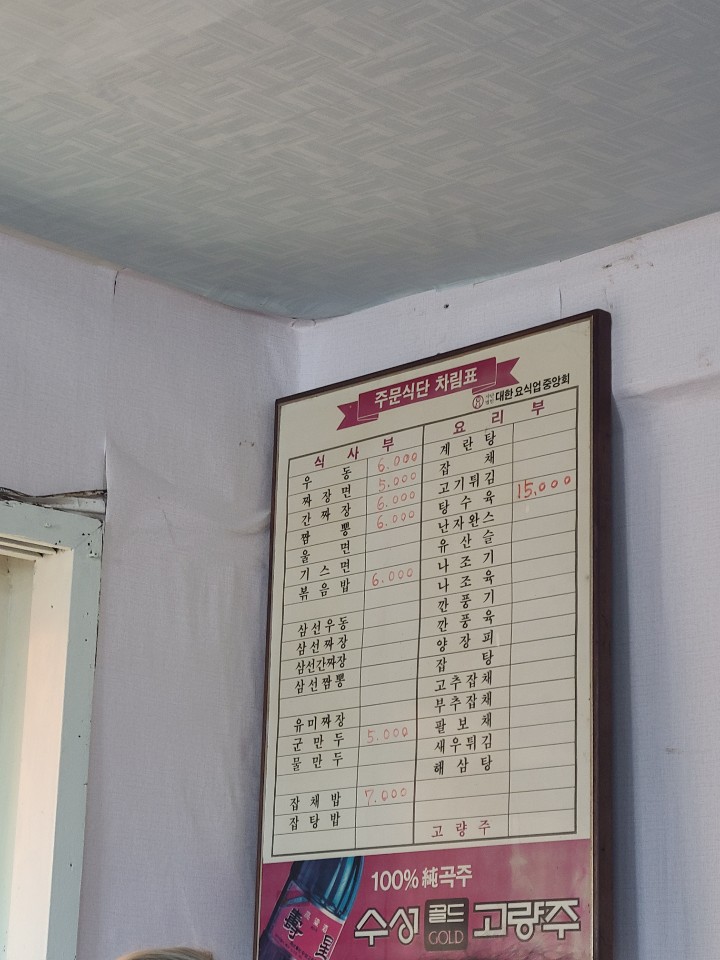 주문식단 차림표
사단법인 대한요식업중앙회
식 사 부
우 동 6.000
짜 장 면 5.000
간 짜 장 6.000
짬 뽕 6.000
울 면
기 스 면
볶 음 밥 6.000
삼선우동
삼선짜장
삼선간짜장
삼선짬뽕
유미짜장
군 만 두 5.000
물 만 두
잡 채 밥 7.000
잡 탕 밥
요 리 부
계 란 탕
잡 채
고기튀김
탕 수 육 15.000
난자완스
유 산 슬
나 조 기
나 조 육
깐 풍 기
깐 풍 육
양 장 피
잡 탕
고추잡채
부추잡채
팔 보 채
새우튀김
해 삼 탕
고 량 주
100% 純곡주
수성 골드 GOLD 고량주
壽星